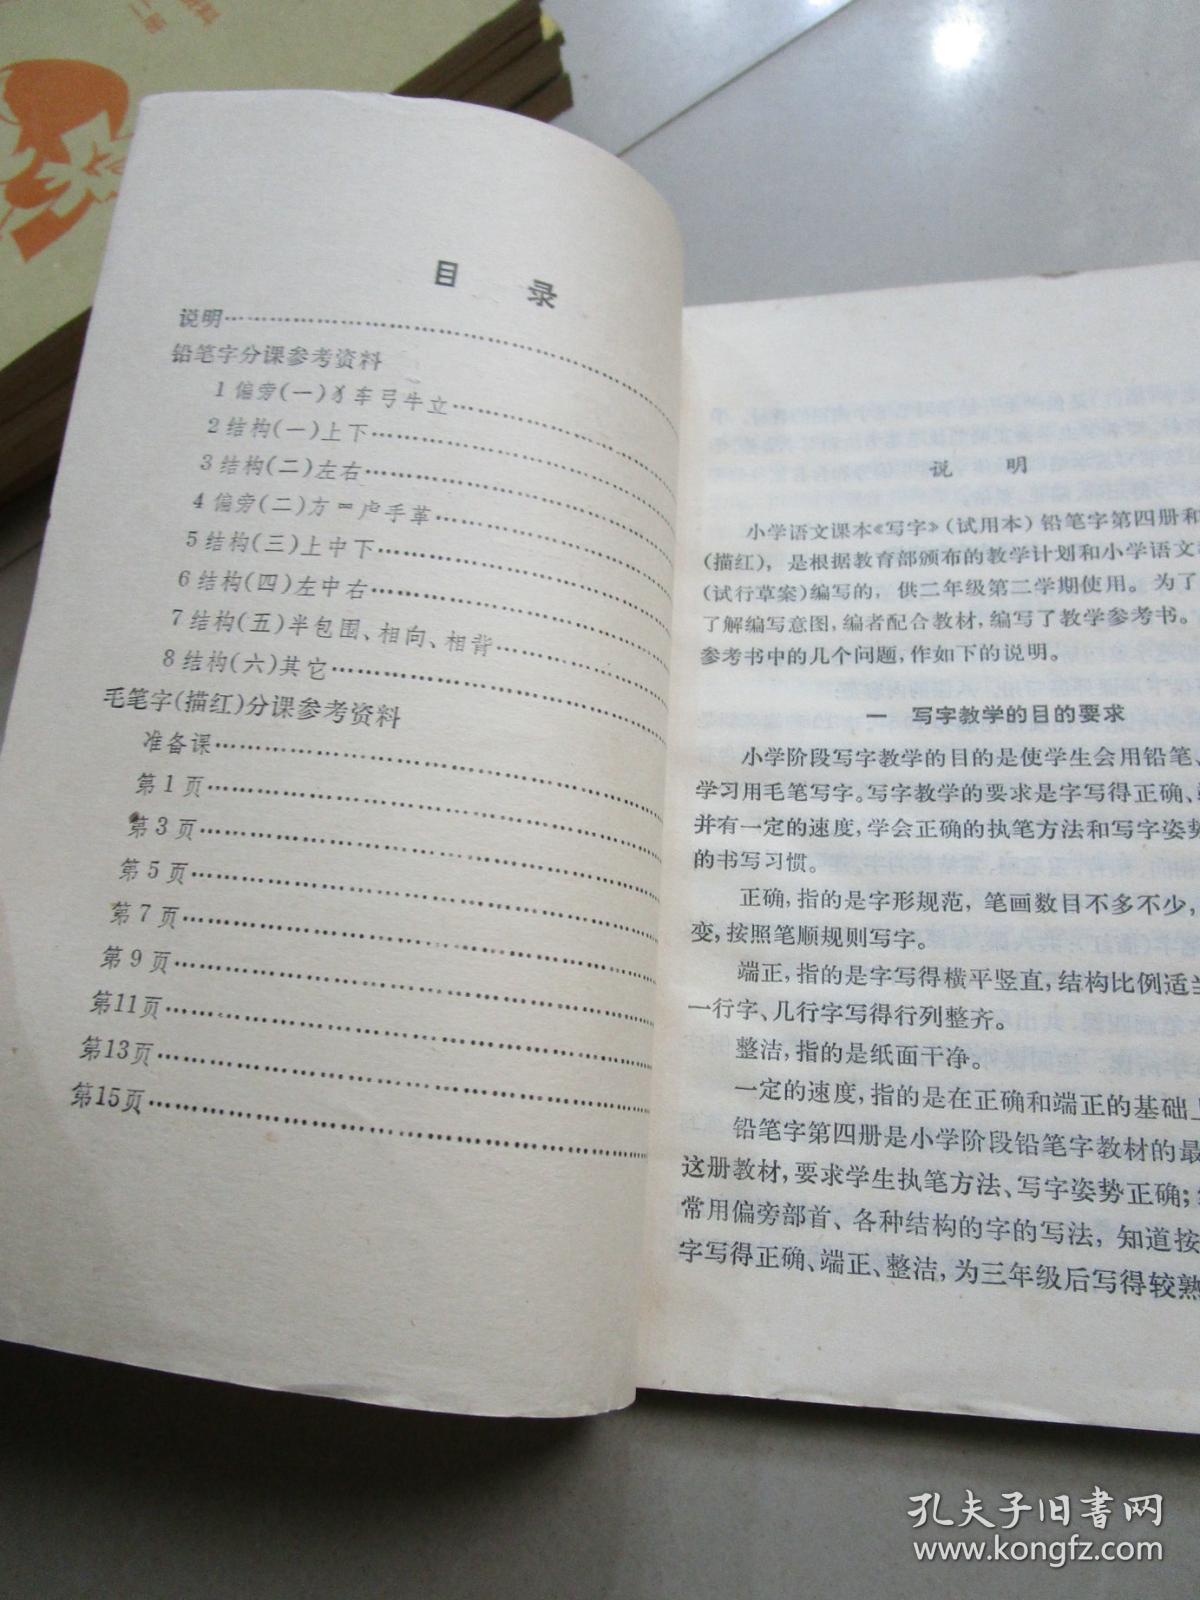 目 录
说明
铅笔字分课参考资料
1 偏旁(一)犭车弓牛立
2 结构(一)上下
3 结构(二)左右
4 偏旁(二)方 虍手革
5 结构(三)上中下
6 结构(四)左中右
7 结构(五)半包围、相向、相背
8 结构(六)其它
毛笔字(描红)分课参考资料
准备课
第1页
第3页
第5页
第7页
第9页
第11页
第13页
第15页
说 明
小学语文课本《写字》(试用本)铅笔字第四册和
(描红)，是根据教育部颁布的教学计划和小学语文
(试行草案)编写的，供二年级第二学期使用。为了
了解编写意图，编者配合教材，编写了教学参考书。
参考书中的几个问题，作如下的说明。
一 写字教学的目的要求
小学阶段写字教学的目的是使学生会用铅笔、
学习用毛笔写字。写字教学的要求是字写得正确、
并有一定的速度，学会正确的执笔方法和写字姿势
的书写习惯。
正确，指的是字形规范，笔画数目不多不少，
变，按照笔顺规则写字。
端正，指的是字写得横平竖直，结构比例适当
一行字、几行字写得行列整齐。
整洁，指的是纸面干净。
一定的速度，指的是在正确和端正的基础上
铅笔字第四册是小学阶段铅笔字教材的最
这册教材，要求学生执笔方法、写字姿势正确；
常用偏旁部首、各种结构的字的写法，知道按
字写得正确、端正、整洁，为三年级后写得较熟
孔夫子旧书网
www.kongfz.com